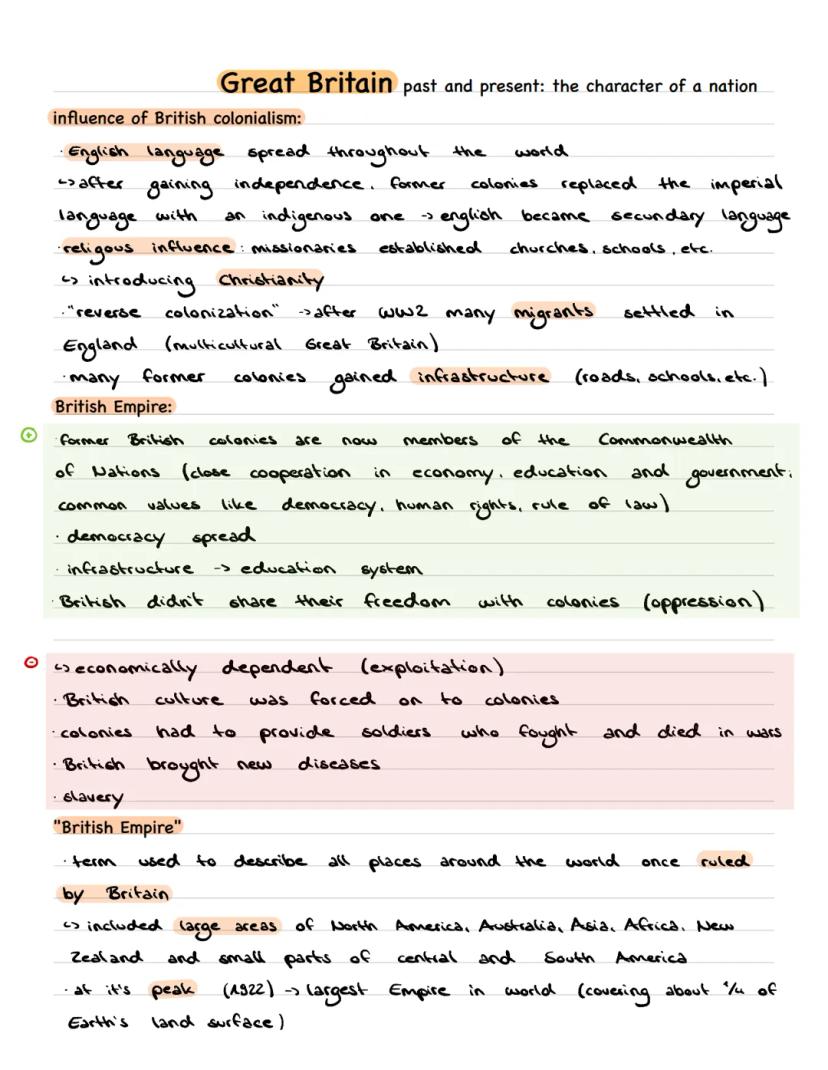 Great Britain past and present: the character of a nation
influence of British colonialism:
· English language spread throughout the world
↳ after gaining independence, former colonies replaced the imperial
language with an indigenous one -> english became secundary language
· religous influence: missionaries established churches, schools, etc.
↳ introducing Christianity
· "reverse colonization" -> after WW2 many migrants settled in
England (multicultural Great Britain)
· many former colonies gained infrastructure (roads, schools, etc.)
British Empire:
+ · former British colonies are now members of the Commonwealth
of Nations (close cooperation in economy, education and government;
common values like democracy, human rights, rule of law)
· democracy spread
· infrastructure -> education system
· British didn't share their freedom with colonies (oppression)
- ↳ economically dependent (exploitation)
· British culture was forced on to colonies
· colonies had to provide soldiers who fought and died in wars
· British brought new diseases
· slavery
"British Empire"
· term used to describe all places around the world once ruled
by Britain
↳ included large areas of North America, Australia, Asia, Africa, New
Zealand and small parts of central and South America
· at it's peak (1922) -> largest Empire in world (covering about 1/4 of
Earth's land surface)